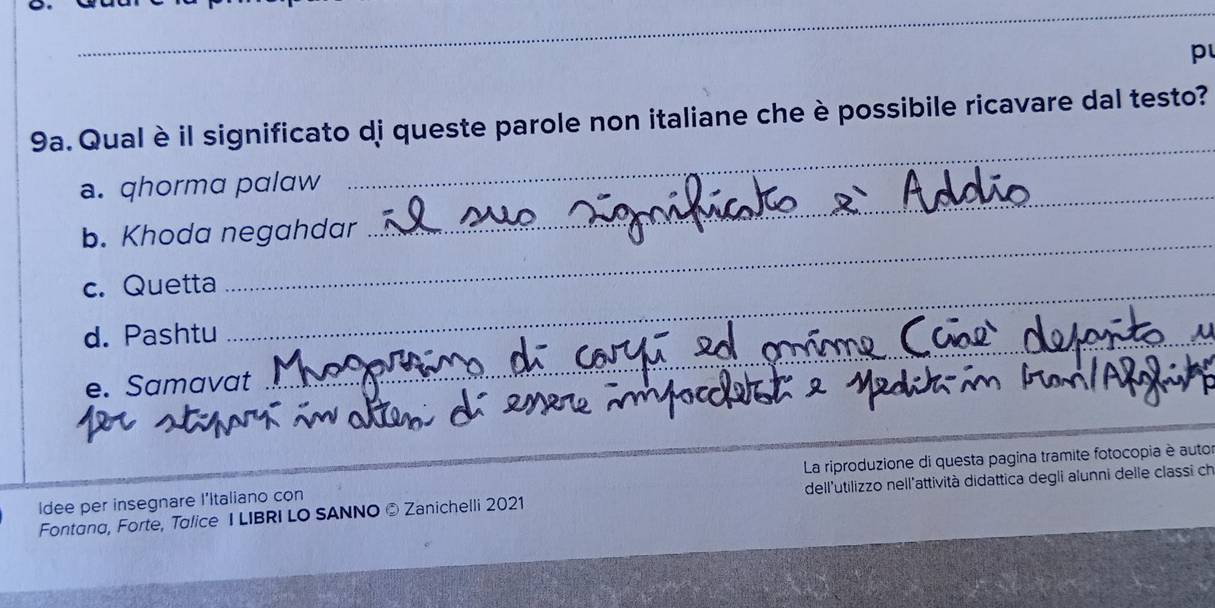 9a. Qual è il significato di queste parole non italiane che è possibile ricavare dal testo?
a. qhorma palaw
b. Khoda negahdar il suo significato è Addio
c. Quetta
d. Pashtu
e. Samavat Magazzino di corpi ed anime (cioè deposito
per stiparci in attesa di essere impacchettati e spediti in Iran/
Idee per insegnare l'Italiano con
Fontana, Forte, Talice I LIBRI LO SANNO © Zanichelli 2021
La riproduzione di questa pagina tramite fotocopia è autor
dell'utilizzo nell'attività didattica degli alunni delle classi ch